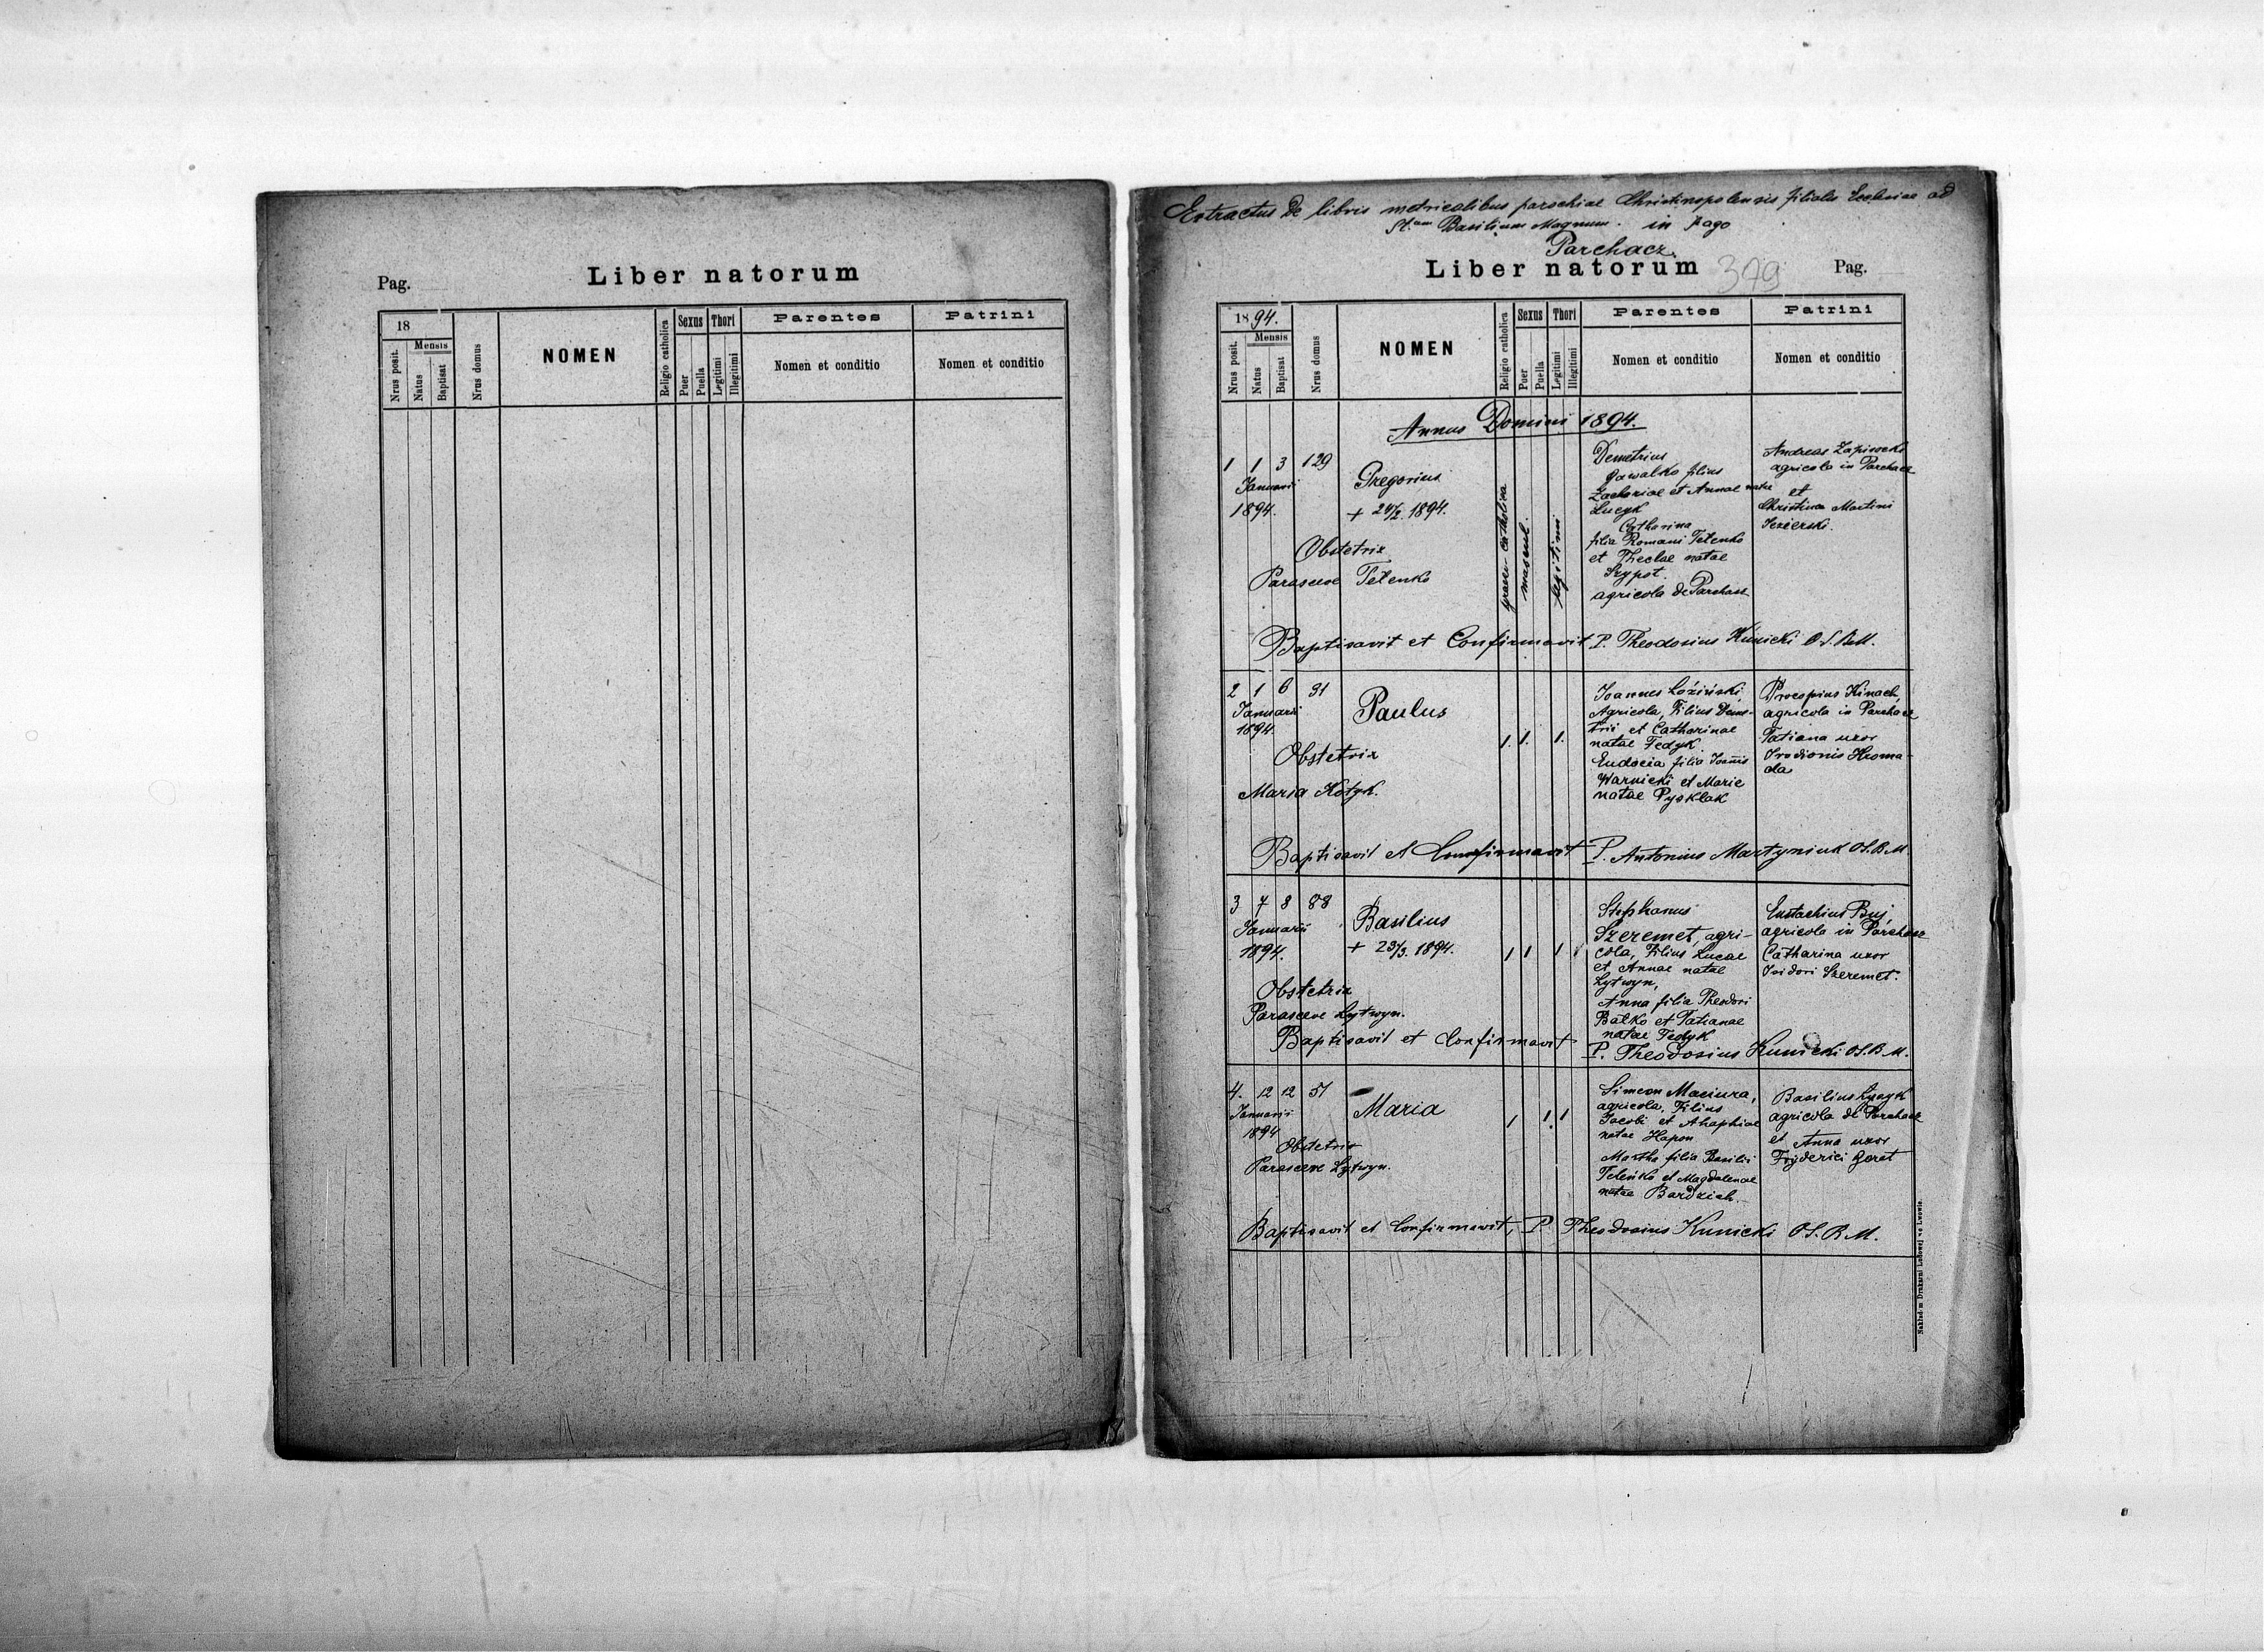 Pag.
Liber natorum
18
Mensis
Nrus posit.
Natus
Baptisat
Nrus domus
NOMEN
Religio catholica
Sexus
Puer
Puella
Thori
Legitimi
Illegitimi
Parentes
Nomen et conditio
Patrini
Nomen et conditio
Extractus de libris metricalibus parochiae Christinopolensis filialis Ecclesiae ad
St.am Basilium Magnum. in pago
Parchacz.
Liber natorum
379
Pag.
1894.
Mensis
Nrus posit.
Natus
Baptisat
Nrus domus
NOMEN
Religio catholica
Sexus
Puer
Puella
Thori
Legitimi
Illegitimi
Parentes
Nomen et conditio
Patrini
Nomen et conditio
Annus Domini 1894.
1 1 3 129
Januarii
1894.
Gregorius
+ 24/2. 1894.
Obstetrix
Parasceve Tełenko
graeco-catholica
mascul.
legitimi
Demetrius
Gawalko filius
Zachariae et Annae natae
Lucyk
Catharina
filia Romani Tełenko
et Theclae natae
Szypot.
agricola de Parchacz
Andreas
agricola in Parchacz
et
Christina Martini
Jezierski.
Baptisavit et Confirmavit P. Theodosius Kunicki O.S.B.M.
2 1 6 91
Januarii
1894.
Paulus
Obstetrix
Maria Kotyk.
1. 1. 1.
Joannes Łoziński,
Agricola, Filius Deme-
trii et Catharinae
natae Fedyk.
Eudocia filia Joannis
Warnicki et Marie
natae Pysklak
Procopius Kinach,
agricola in Parchacz
Tatiana uxor
Irodionis Hroma-
da
Baptisavit et Confirmavit P. Antonius Martyniuk O.S.B.M.
3 7 8 88
Januarii
1894.
Basilius
+ 23/3. 1894.
Obstetrix
Parasceve Lytwyn.
1 1 1
Stephanus
Szeremet, agri-
cola, Filius Lucae
et Annae natae
Lytwyn,
Anna filia Theodori
Balko et Tatianae
natae Fedyk
Eustachius Buj,
agricola in Parchacz
Catharina uxor
Isidori Szeremet.
Baptisavit et Confirmavit
P. Theodosius Kunicki O.S.B.M.
4. 12 12 51
Januarii
1894
Maria
Obstetrix
Parasceve Lytwyn.
1 1. 1
Simeon Maciura,
agricola, Filius
Jacobi et Ahaphiae
natae Hapon
Martha filia Basilii
Tełenko et Magdalenae
natae Bardziah.
Basilius
agricola de Parchacz
et Anna uxor
Fryderici Gerat
Baptisavit et Confirmavit, P. Theodosius Kunicki O.S.B.M.
Nakładem Drukarni Ludowej we Lwowie.